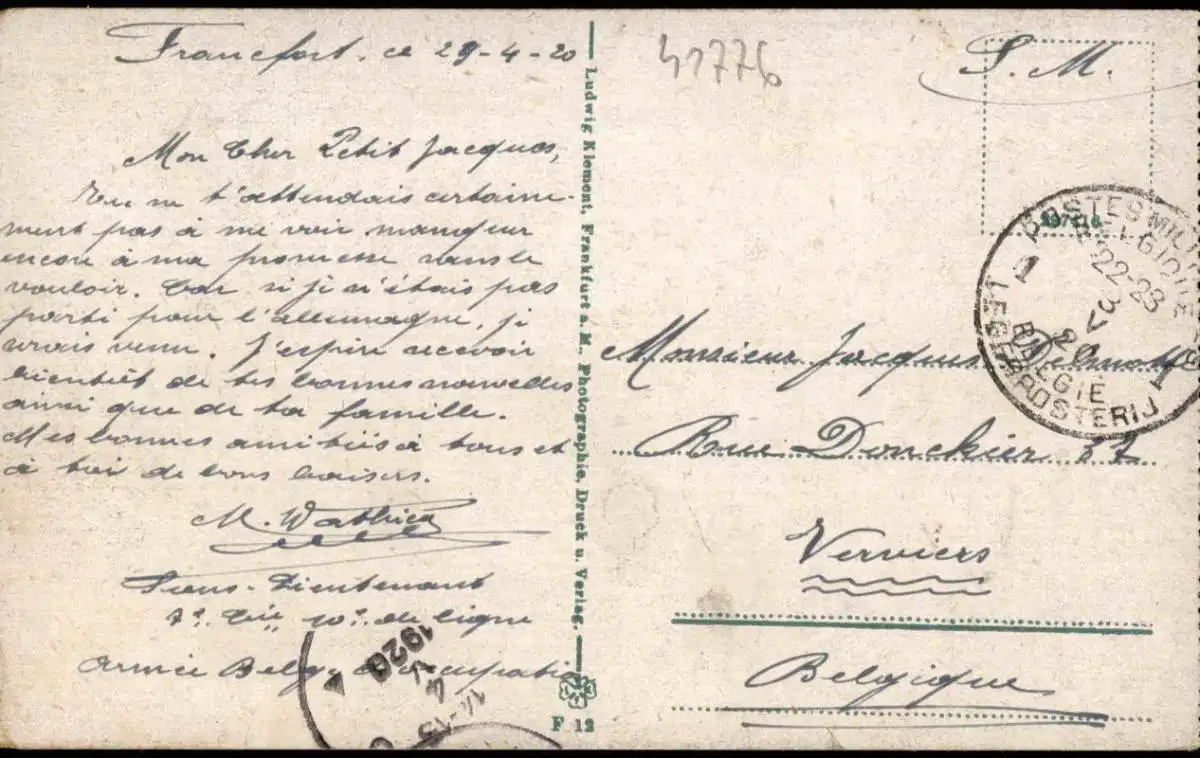 Francfort. ce 29-4-20
Mon Cher Petit Jacques,
Tu ne t'attendais certaine-
ment pas à me voir manquer
encore à ma promesse sans le
vouloir. Car si je n'étais pas
parti pour l'allemagne, je
serais venu. J'espère recevoir
bientôt de tes bonnes nouvelles
ainsi que de ta famille.
Mes bonnes amitiés à tous et
à toi de bons baisers.
M. Wathieu
Sous-Lieutenant
7e Cie 10e de ligne
Armée Belge d'occupation
1920
Ludwig Klement, Frankfurt a. M., Photographie, Druck u. Verlag.
F 12
41776
S. M.
POSTES MILIT
BELGIQUE
22-23
BELGIE
LEGERPOSTERIJ
1
1
Monsieur Jacques
Rue Donckier 37
Verviers
Belgique